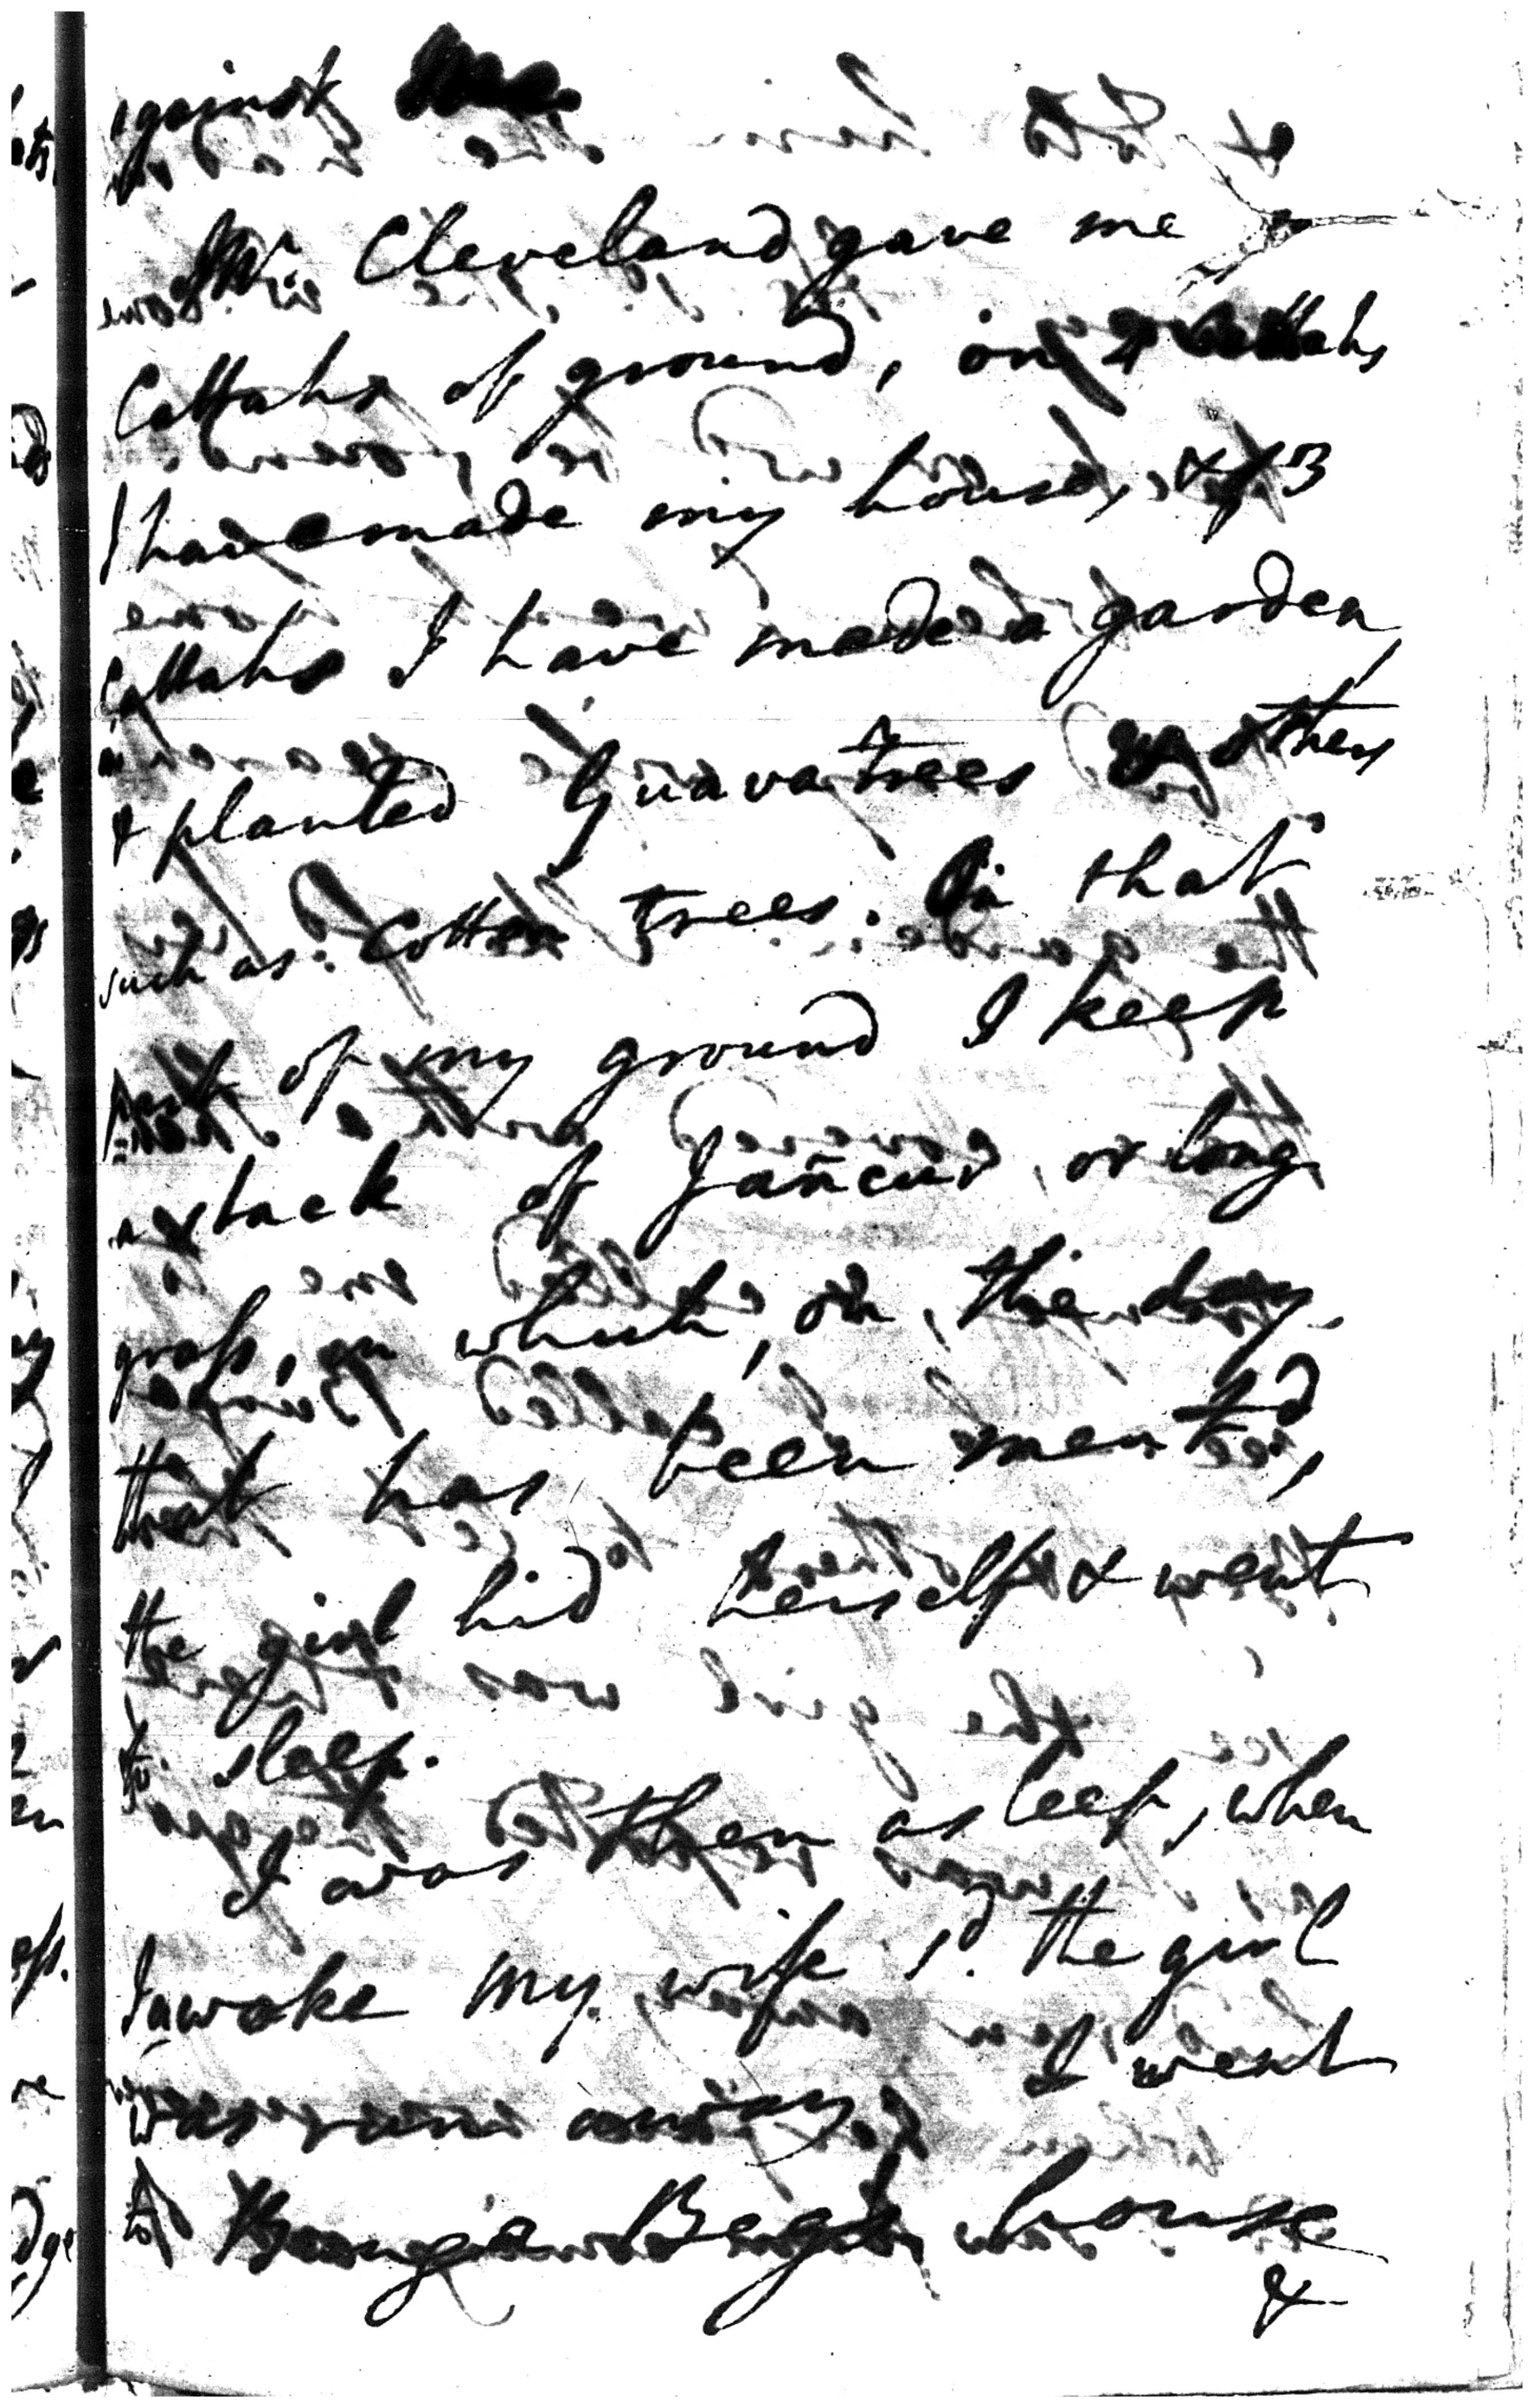 against
Mr. Cleveland gave me 5
Cottahs of ground, on 2 Cottahs
I have made my house, & of 3
Cottahs I have made a garden,
& planted Guava trees & others
such as Cotton trees. In that
part of my ground I keep
a stack of or long
grass, in which, on, the day
that has been mentd,
the girl hid herself & went
to sleep.
I was then asleep, when
I awoke my wife sd. the girl
was run away, I went
to Beg's house
&